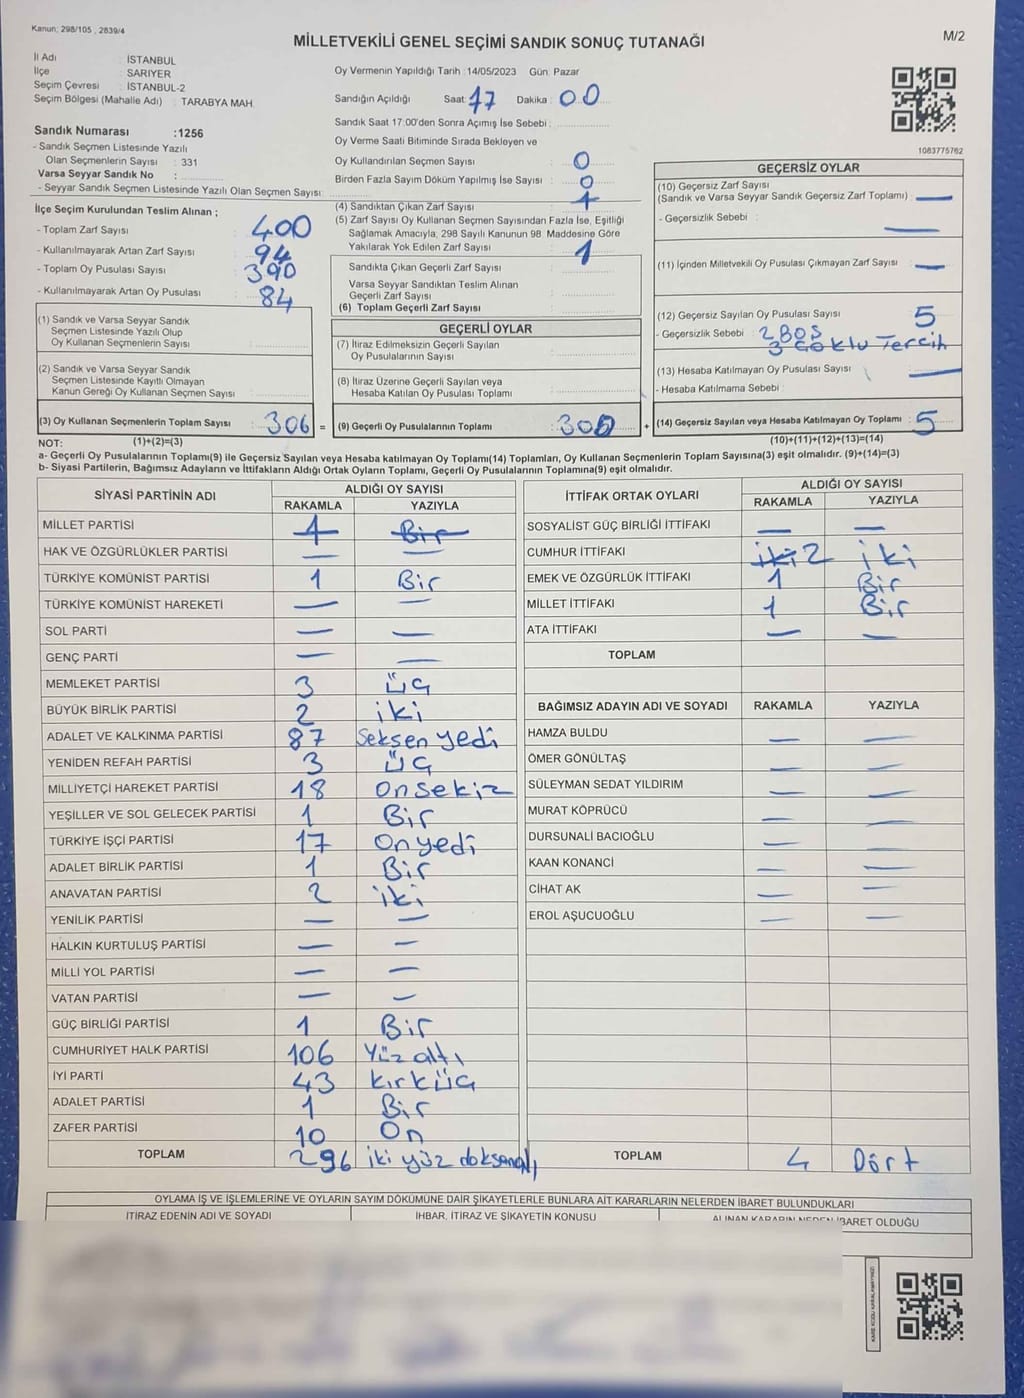 Kanun: 298/105 , 2839/4
MİLLETVEKİLİ GENEL SEÇİMİ SANDIK SONUÇ TUTANAĞI
M/2
İl Adı : İSTANBUL
İlçe : SARIYER
Seçim Çevresi : İSTANBUL-2
Seçim Bölgesi (Mahalle Adı) : TARABYA MAH.
Oy Vermenin Yapıldığı Tarih : 14/05/2023 Gün: Pazar
Sandığın Açıldığı Saat: 17 Dakika : 00
Sandık Saat 17:00'den Sonra Açımış İse Sebebi :
Oy Verme Saati Bitiminde Sırada Bekleyen ve
Oy Kullandırılan Seçmen Sayısı : 0
Birden Fazla Sayım Döküm Yapılmış İse Sayısı : 0
Sandık Numarası :1256
- Sandık Seçmen Listesinde Yazılı
Olan Seçmenlerin Sayısı : 331
Varsa Seyyar Sandık No :
- Seyyar Sandık Seçmen Listesinde Yazılı Olan Seçmen Sayısı:
İlçe Seçim Kurulundan Teslim Alınan ;
- Toplam Zarf Sayısı : 400
- Kullanılmayarak Artan Zarf Sayısı : 94
- Toplam Oy Pusulası Sayısı : 390
- Kullanılmayarak Artan Oy Pusulası : 84
(1) Sandık ve Varsa Seyyar Sandık
Seçmen Listesinde Yazılı Olup
Oy Kullanan Seçmenlerin Sayısı :
(2) Sandık ve Varsa Seyyar Sandık
Seçmen Listesinde Kayıtlı Olmayan
Kanun Gereği Oy Kullanan Seçmen Sayısı :
(3) Oy Kullanan Seçmenlerin Toplam Sayısı : 306 =
(1)+(2)=(3)
(4) Sandıktan Çıkan Zarf Sayısı : 1
(5) Zarf Sayısı Oy Kullanan Seçmen Sayısından Fazla İse, Eşitliği
Sağlamak Amacıyla, 298 Sayılı Kanunun 98. Maddesine Göre
Yakılarak Yok Edilen Zarf Sayısı : 1
Sandıkta Çıkan Geçerli Zarf Sayısı :
Varsa Seyyar Sandıktan Teslim Alınan
Geçerli Zarf Sayısı :
(6) Toplam Geçerli Zarf Sayısı :
GEÇERLİ OYLAR
(7) İtiraz Edilmeksizin Geçerli Sayılan
Oy Pusulalarının Sayısı :
(8) İtiraz Üzerine Geçerli Sayılan veya
Hesaba Katılan Oy Pusulası Toplamı :
(9) Geçerli Oy Pusulalarının Toplamı : 300 +
1083775762
GEÇERSİZ OYLAR
(10) Geçersiz Zarf Sayısı
(Sandık ve Varsa Seyyar Sandık Geçersiz Zarf Toplamı) : —
- Geçersizlik Sebebi : —
(11) İçinden Milletvekili Oy Pusulası Çıkmayan Zarf Sayısı : —
(12) Geçersiz Sayılan Oy Pusulası Sayısı : 5
- Geçersizlik Sebebi : 2 BOŞ
3 Çoklu Tercih
(13) Hesaba Katılmayan Oy Pusulası Sayısı : —
- Hesaba Katılmama Sebebi :
(14) Geçersiz Sayılan veya Hesaba Katılmayan Oy Toplamı : 5
(10)+(11)+(12)+(13)=(14)
NOT:
a- Geçerli Oy Pusulalarının Toplamı(9) ile Geçersiz Sayılan veya Hesaba katılmayan Oy Toplamı(14) Toplamları, Oy Kullanan Seçmenlerin Toplam Sayısına(3) eşit olmalıdır. (9)+(14)=(3)
b- Siyasi Partilerin, Bağımsız Adayların ve İttifakların Aldığı Ortak Oyların Toplamı, Geçerli Oy Pusulalarının Toplamına(9) eşit olmalıdır.
SİYASİ PARTİNİN ADI ALDIĞI OY SAYISI
RAKAMLA YAZIYLA
MİLLET PARTİSİ 1 Bir
HAK VE ÖZGÜRLÜKLER PARTİSİ — —
TÜRKİYE KOMÜNİST PARTİSİ 1 Bir
TÜRKİYE KOMÜNİST HAREKETİ — —
SOL PARTİ — —
GENÇ PARTİ — —
MEMLEKET PARTİSİ 3 üç
BÜYÜK BİRLİK PARTİSİ 2 iki
ADALET VE KALKINMA PARTİSİ 87 Seksen yedi
YENİDEN REFAH PARTİSİ 3 üç
MİLLİYETÇİ HAREKET PARTİSİ 18 onsekiz
YEŞİLLER VE SOL GELECEK PARTİSİ 1 Bir
TÜRKİYE İŞÇİ PARTİSİ 17 Onyedi
ADALET BİRLİK PARTİSİ 1 Bir
ANAVATAN PARTİSİ 2 iki
YENİLİK PARTİSİ — —
HALKIN KURTULUŞ PARTİSİ — —
MİLLİ YOL PARTİSİ — —
VATAN PARTİSİ — —
GÜÇ BİRLİĞİ PARTİSİ 1 Bir
CUMHURİYET HALK PARTİSİ 106 Yüz altı
İYİ PARTİ 43 kırküç
ADALET PARTİSİ 1 Bir
ZAFER PARTİSİ 10 On
TOPLAM 296 iki yüz doksanaltı
İTTİFAK ORTAK OYLARI ALDIĞI OY SAYISI
RAKAMLA YAZIYLA
SOSYALİST GÜÇ BİRLİĞİ İTTİFAKI — —
CUMHUR İTTİFAKI iki 2 iki
EMEK VE ÖZGÜRLÜK İTTİFAKI 1 Bir
MİLLET İTTİFAKI 1 Bir
ATA İTTİFAKI — —
TOPLAM
BAĞIMSIZ ADAYIN ADI VE SOYADI RAKAMLA YAZIYLA
HAMZA BULDU — —
ÖMER GÖNÜLTAŞ — —
SÜLEYMAN SEDAT YILDIRIM — —
MURAT KÖPRÜCÜ — —
DURSUNALİ BACIOĞLU — —
KAAN KONANCİ — —
CİHAT AK — —
EROL AŞUCUOĞLU — —
TOPLAM 4 Dört
OYLAMA İŞ VE İŞLEMLERİNE VE OYLARIN SAYIM DÖKÜMÜNE DAİR ŞİKAYETLERLE BUNLARA AİT KARARLARIN NELERDEN İBARET BULUNDUKLARI
İTİRAZ EDENİN ADI VE SOYADI İHBAR, İTİRAZ VE ŞİKAYETİN KONUSU ALINAN KARARIN NEDEN İBARET OLDUĞU